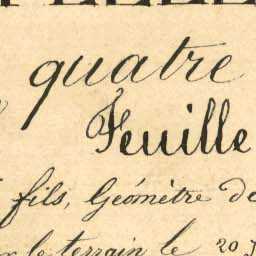 quatre
Feuille
fils, Géomètre de
le terrain le 20